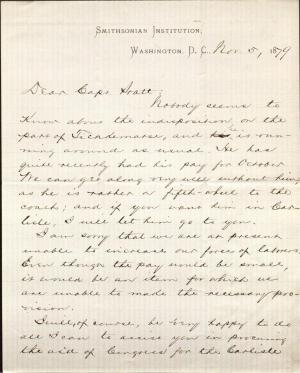 SMITHSONIAN INSTITUTION,
WASHINGTON, D. C., Nov. 5, 1879
Dear Capt Pratt:
Nobody seems to
know about the indisposition on the
part of and he is run-
ning around as usual. He has
quite recently had his pay for October
We can get along very well without him,
as he is rather a fifth-wheel to the
coach; and if you want him in Car-
lisle, I will let him go to you.
I am sorry that we are at present
unable to increase our force of laborers.
Even though the pay would be small,
it would be an item for which we
are unable to made the necessary pro-
vision.
I will, of course, be very happy to do
all I can to assist you in procuring
the aid of Congress for the Carlisle